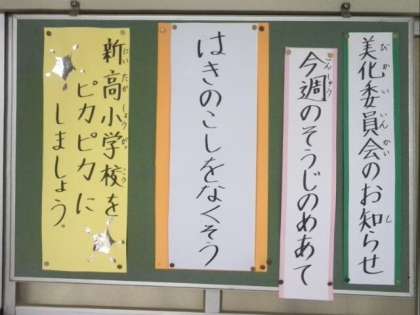 美化委員会のお知らせ
今週のそうじのめあて
はきのこしをなくそう
新高小学校を
ピカピカに
しましょう。